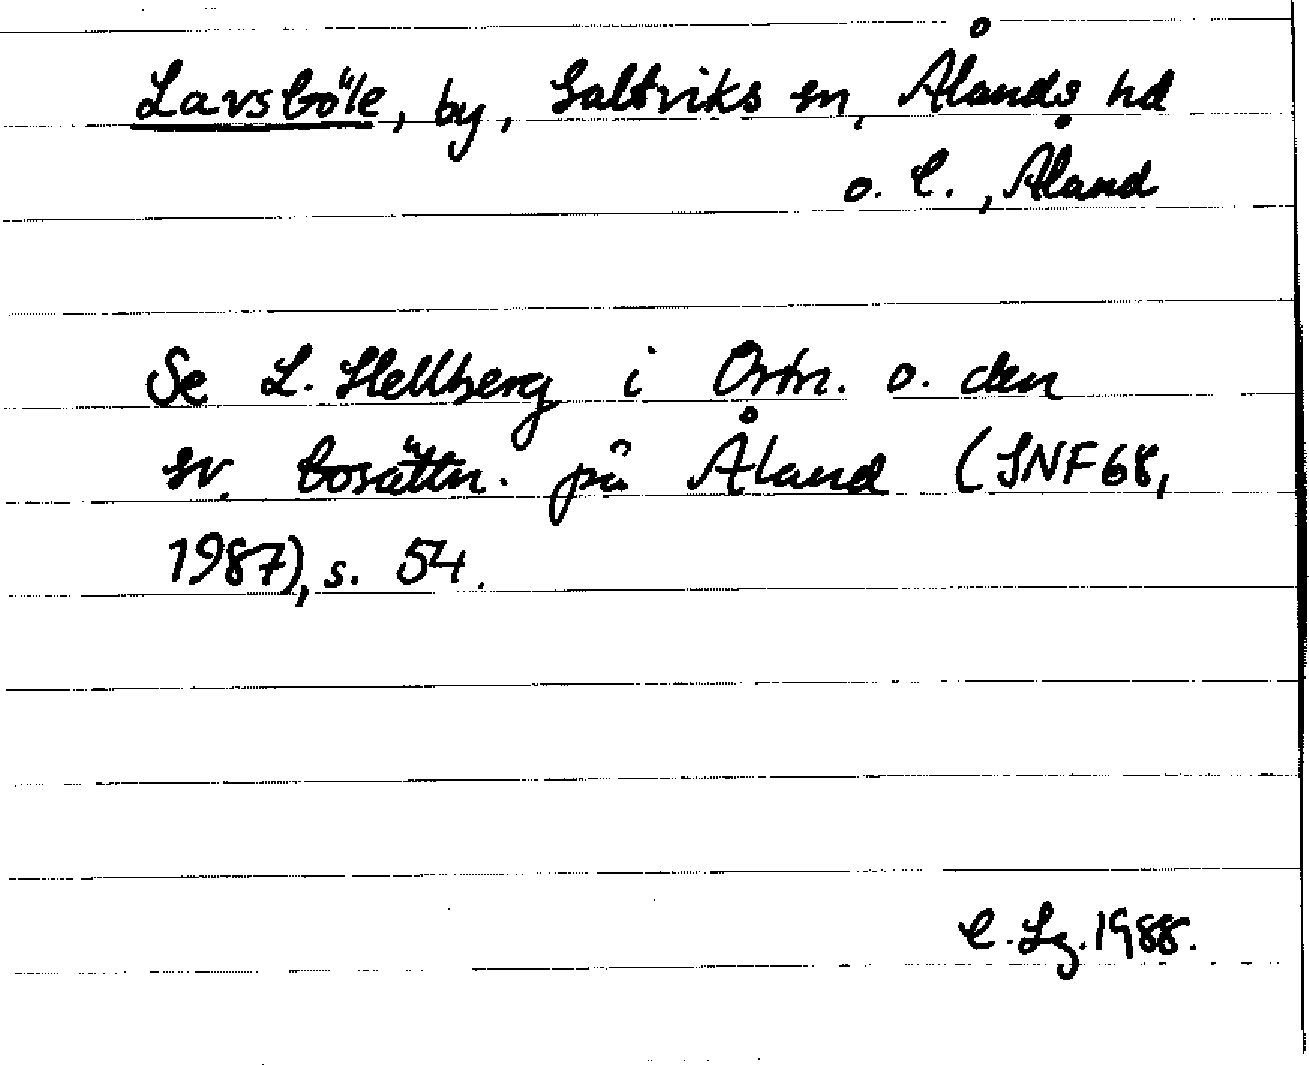 Lavsböle, by, Saltviks sn, Ålands hd
o. l., Åland
Se L. Hellberg i Ortn. o. den
sv. bosättn. på Åland (SNF 68,
1987), s. 54.
C. Lg. 1988.